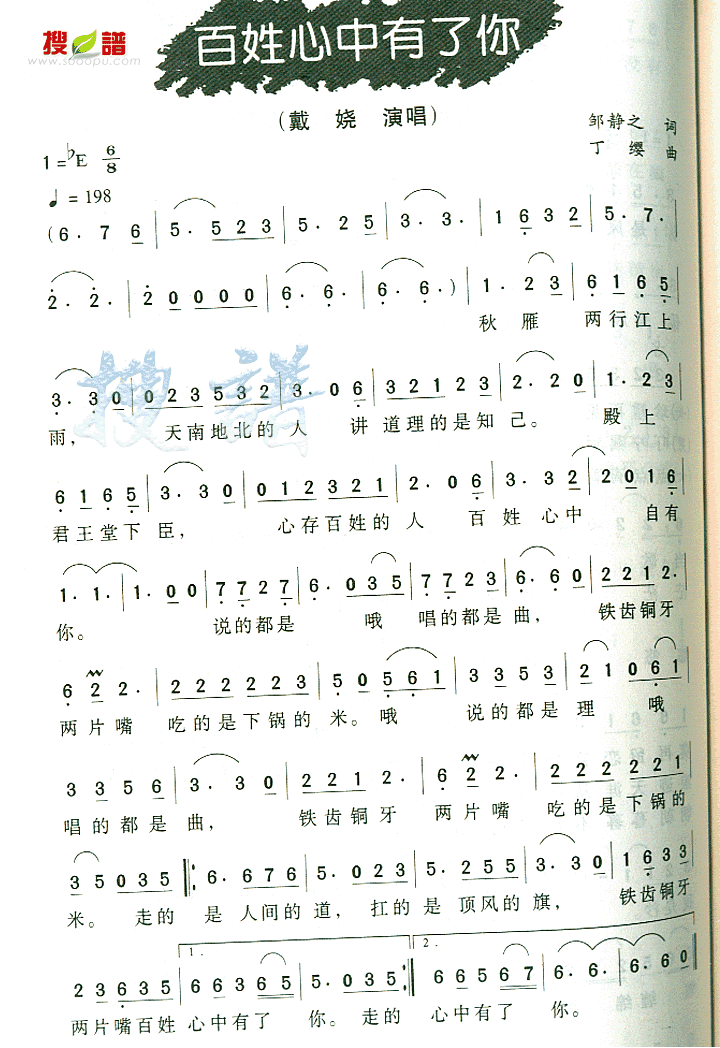 搜 譜
www.sooopu.com
百姓心中有了你
(戴 娆 演唱)
邹静之 词
丁 缨 曲
1=♭E 6/8
♩= 198
(6. 7 6 | 5. 5 2 3 | 5. 2 5 | 3. 3. | 1 6 3 2 | 5. 7. |
2. 2. | 2 0 0 0 0 | 6. 6. | 6. 6.) | 1. 2 3 | 6 1 6 5 |
秋 雁 两行江上
3. 3 0 | 0 2 3 5 3 2 | 3. 0 6 | 3 2 1 2 3 | 2. 2 0 | 1. 2 3 |
雨, 天南地北的 人 讲 道理的是知 己。 殿 上
6 1 6 5 | 3. 3 0 | 0 1 2 3 2 1 | 2. 0 6 | 3. 3 2 | 2 0 1 6 |
君王堂下 臣, 心存百姓的 人 百 姓 心中 自有
1. 1. | 1 0 0 | 7 7 2 7 | 6. 0 3 5 | 7 7 2 3 | 6. 6 0 | 2 2 1 2. |
你。 说的都是 哦 唱的都是 曲, 铁齿铜牙
6 2 2. | 2 2 2 2 2 3 | 5 0 5 6 1 | 3 3 5 3 | 2 1 0 6 1 |
两片嘴 吃的是下锅的 米。哦 说的都是 理 哦
3 3 5 6 | 3. 3 0 | 2 2 1 2. | 6 2 2. | 2 2 2 2 2 1 |
唱的都是 曲, 铁齿铜牙 两片嘴 吃的是下锅的
3 5 0 3 5 |: 6. 6 7 6 | 5. 0 3 5 | 5. 2 5 5 | 3. 3 0 | 1 6 3 3 |
米。 走的 是 人间的 道, 扛的 是 顶风的 旗, 铁齿铜牙
1. 2.
2 3 6 3 5 | 6 6 3 6 5 | 5. 0 3 5 :| 6 6 5 6 7 | 6. 6. | 6. 6 0 |
两片嘴百姓 心中有了 你。走的 心中有了 你。